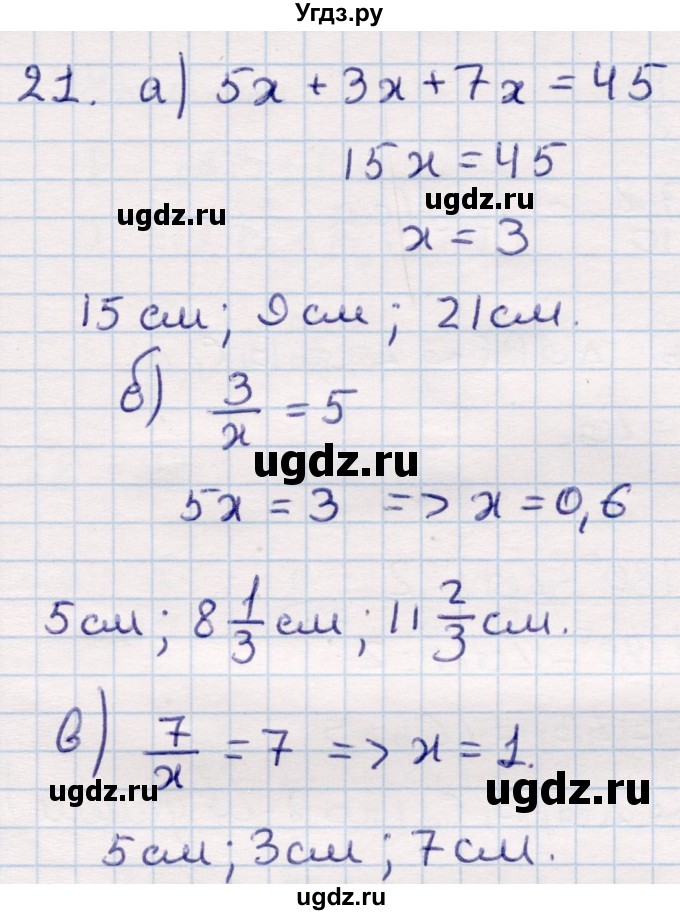 Угдз.ру
21. а) 5x + 3x + 7x = 45
15x = 45
ugdz.ru
ugdz.ru
x = 3
15 см; 9 см; 21 см.
б) 3/x = 5
ugdz.ru
5x = 3 => x = 0,6
5 см; 8 1/3 см; 11 2/3 см.
в) 7/x = 7 => x = 1.
ugdz.ru
ugdz.ru
5 см; 3 см; 7 см.
ugdz.ru